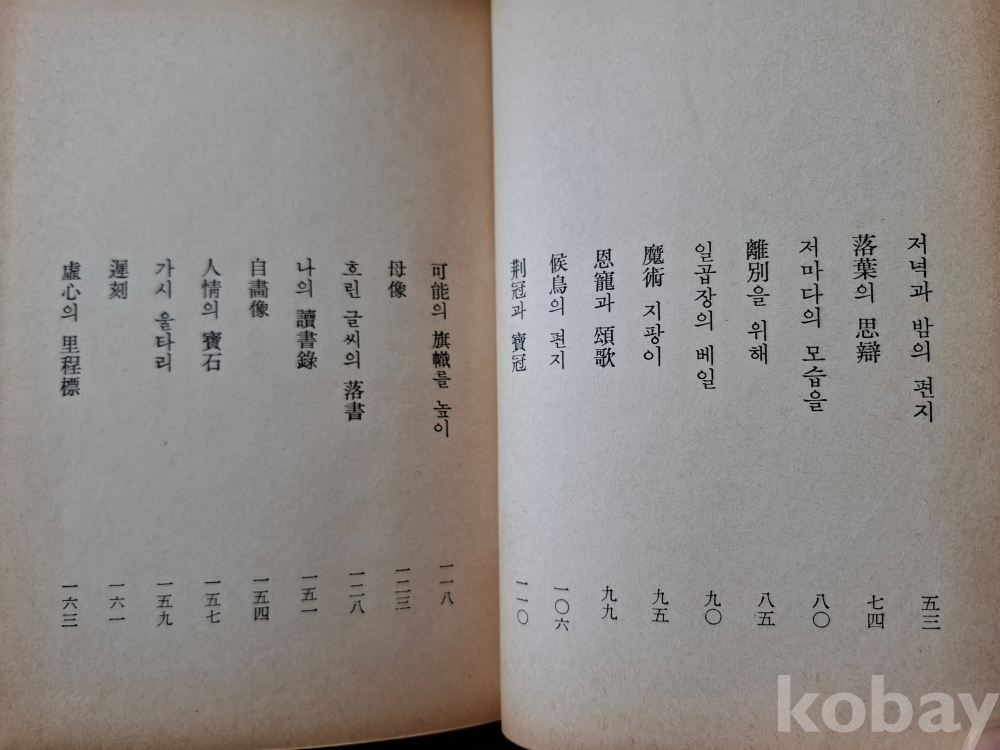 저녁과 밤의 편지 五三
落葉의 思辯 七四
저마다의 모습을 八〇
離別을 위해 八五
일곱장의 베일 九〇
魔術 지팡이 九五
恩寵과 頌歌 九九
候鳥의 편지 一〇六
荆冠과 寶冠 一一〇
可能의 旗幟를 높이 一一八
母像 一二三
흐린 글씨의 落書 一二八
나의 讀書錄 一五一
自畵像 一五四
人情의 寶石 一五七
가시 울타리 一五九
遲刻 一六一
虛心의 里程標 一六三
kobay